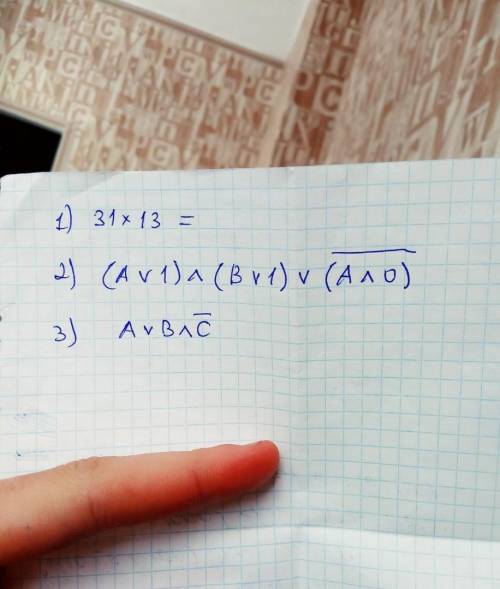 1) 31 × 13 =
2) (A ∨ 1) ∧ (B ∨ 1) ∨ (A̅ ̅∧̅ ̅0̅)
3) A ∨ B ∧ C̅